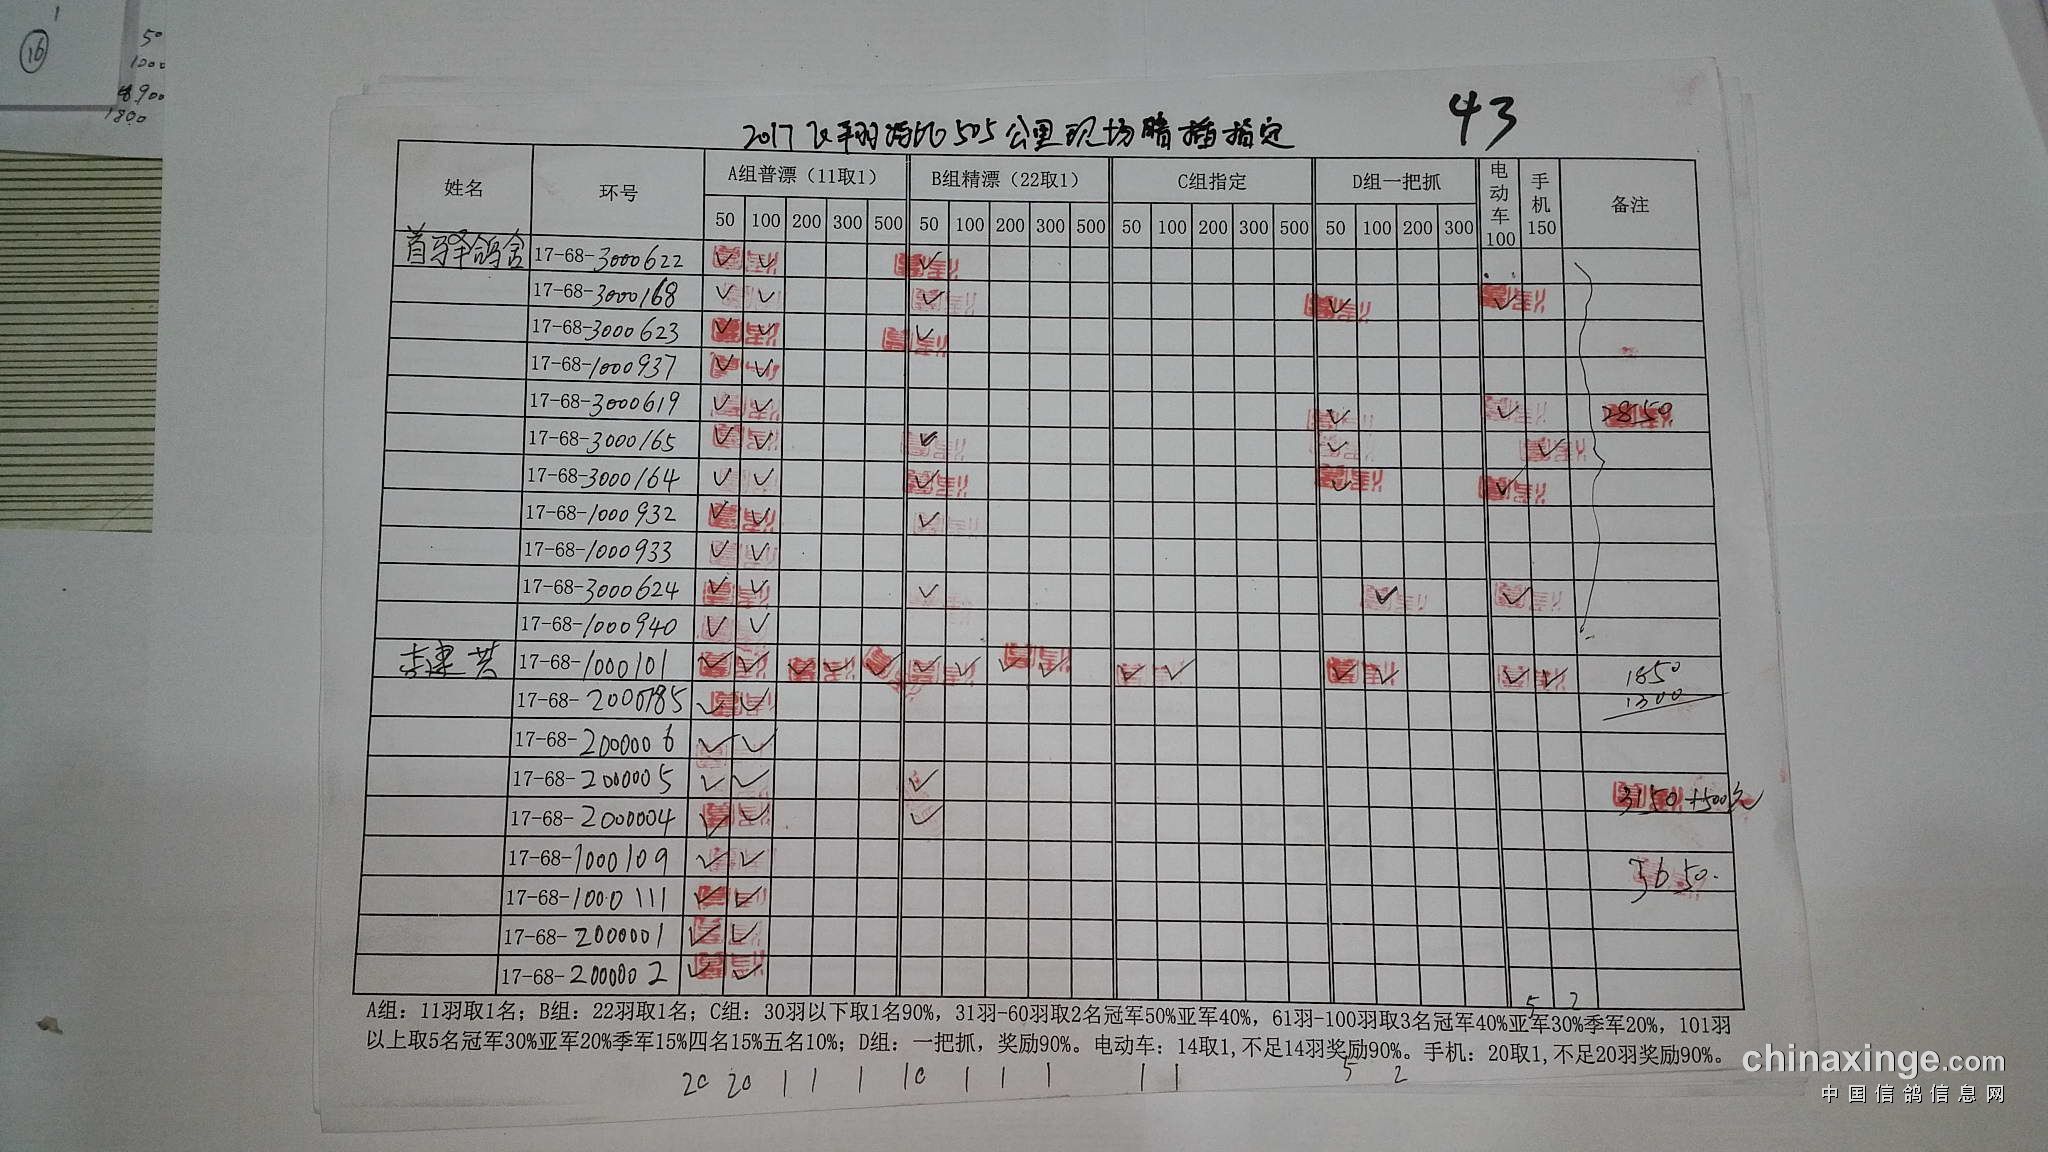 1
16
50
1000
8900
1800
43
2017飞翔 505公里现场暗插指定
姓名 环号 A组普漂（11取1） B组精漂（22取1） C组指定 D组一把抓 电动车100 手机150 备注
50 100 200 300 500 50 100 200 300 500 50 100 200 300 500 50 100 200 300
首驿鸽舍 17-68-3000622 ✓ ✓ ✓
17-68-3000168 ✓ ✓ ✓ ✓ ✓
17-68-3000623 ✓ ✓ ✓
17-68-1000937 ✓ ✓
17-68-3000619 ✓ ✓ ✓ ✓ 2850
17-68-3000165 ✓ ✓ ✓ ✓ ✓
17-68-3000164 ✓ ✓ ✓ ✓ ✓
17-68-1000932 ✓ ✓ ✓
17-68-1000933 ✓ ✓
17-68-3000624 ✓ ✓ ✓ ✓ ✓
17-68-1000940 ✓ ✓
李建芸 17-68-1000101 ✓ ✓ ✓ ✓ ✓ ✓ ✓ ✓ ✓ ✓ ✓ ✓ ✓ ✓ ✓ 1850
1300
17-68-2000785 ✓ ✓
17-68-2000006 ✓ ✓
17-68-2000005 ✓ ✓ ✓
3150+500元
17-68-2000004 ✓ ✓ ✓
17-68-1000109 ✓ ✓ 3650.
17-68-1000111 ✓ ✓
17-68-2000001 ✓ ✓
17-68-2000002 ✓ ✓
5 2
A组：11羽取1名；B组：22羽取1名；C组：30羽以下取1名90%，31羽-60羽取2名冠军50%亚军40%，61羽-100羽取3名冠军40%亚军30%季军20%，101羽
以上取5名冠军30%亚军20%季军15%四名15%五名10%；D组：一把抓，奖励90%。电动车：14取1,不足14羽奖励90%。手机：20取1,不足20羽奖励90%。
20 20 1 1 1 10 1 1 1 1 1 5 2
chinaxinge.com
中国信鸽信息网